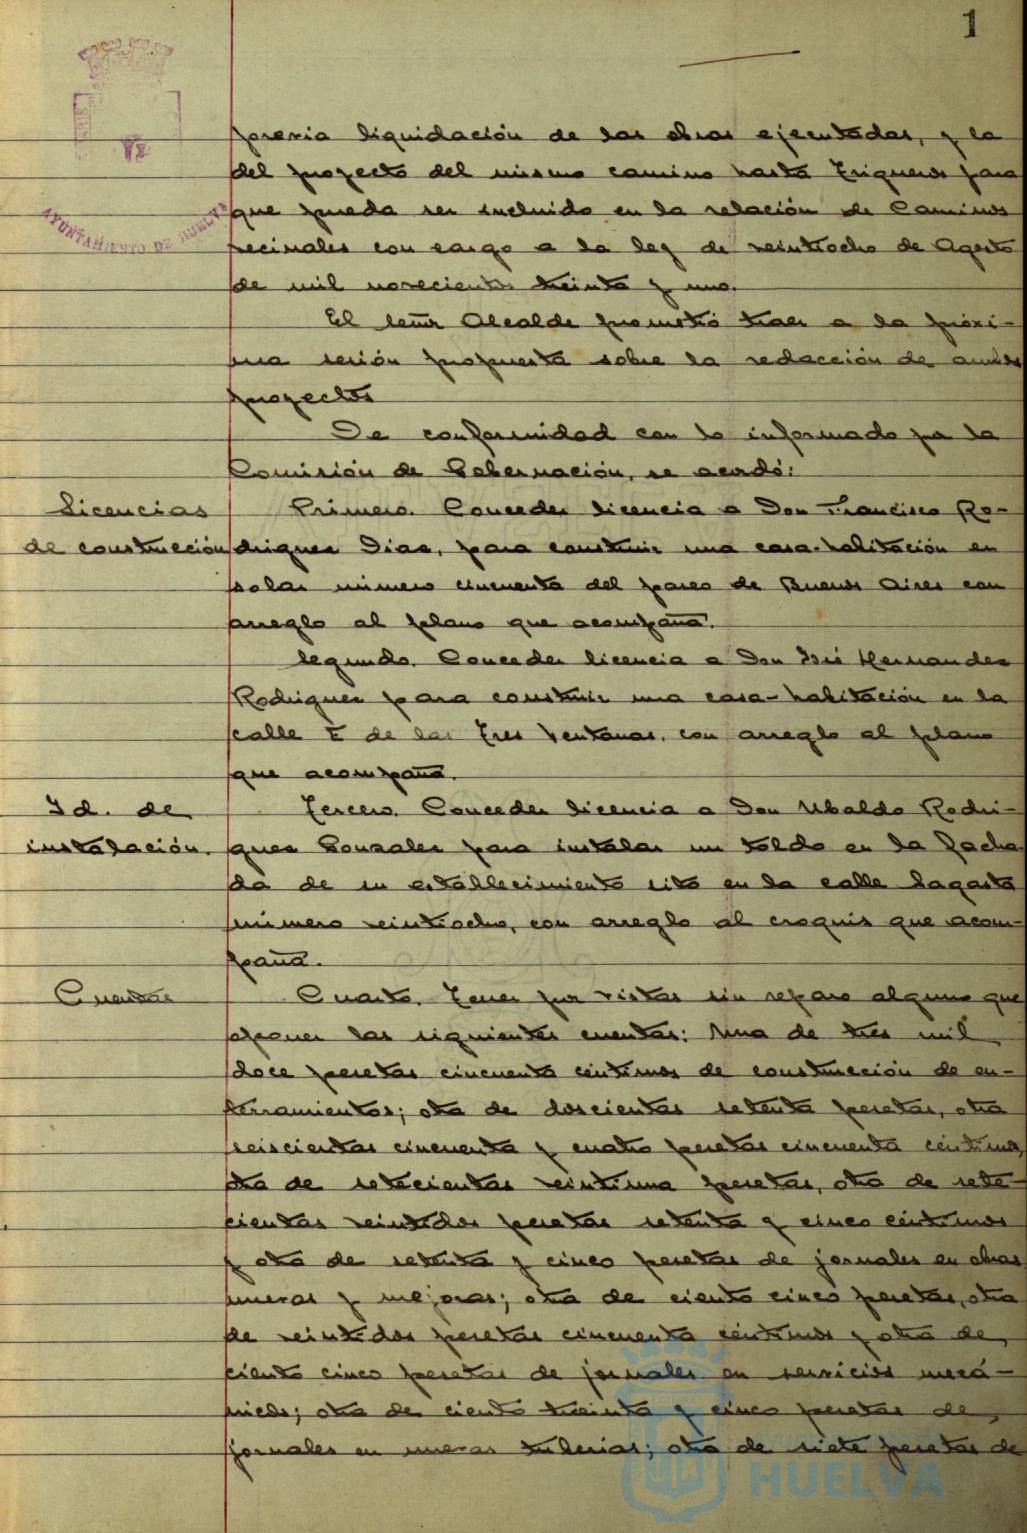 1
AYUNTAMIENTO DE HUELVA
previa liquidación de las obras ejecutadas, y la
del proyecto del mismo camino hasta Trigueros para
que pueda ser incluido en la relación de Caminos
vecinales con cargo a la ley de veintiocho de Agosto
de mil novecientos treinta y uno.
El señor Alcalde prometió traer a la próxi-
ma sesión propuesta sobre la redacción de ambos
proyectos
De conformidad con lo informado por la
Comisión de Gobernación, se acordó:
Licencias
de construcción
Primero. Conceder licencia a Don Francisco Ro-
driguez Diaz, para construir una casa-habitación en
solar número cincuenta del paseo de Buenos Aires con
arreglo al plano que acompaña.
Segundo. Conceder licencia a Don José Hernandez
Rodriguez para construir una casa-habitación en la
calle E de las Tres Ventanas, con arreglo al plano
que acompaña.
Id. de
instalación.
Tercero. Conceder licencia a Don Ubaldo Rodri-
guez Gonzalez para instalar un toldo en la facha-
da de su establecimiento sito en la calle Sagasta
número veintiocho, con arreglo al croquis que acom-
paña.
Cuentas
Cuarto. Tener por vistas sin reparo alguno que
oponer las siguientes cuentas: Una de tres mil
doce pesetas cincuenta céntimos de construcción de en-
terramientos; otra de doscientas setenta pesetas, otra
seiscientas cincuenta y cuatro pesetas cincuenta céntimos,
otra de setecientas veintiuna pesetas, otra de sete-
cientas veintidos pesetas setenta y cinco céntimos
y otra de setenta y cinco pesetas de jornales en obras
nuevas y mejoras; otra de ciento cinco pesetas, otra
de veintidos pesetas cincuenta céntimos y otra de
ciento cinco pesetas de jornales en servicios mecá-
nicos; otra de ciento treinta y cinco pesetas de
jornales en nuevas tuberias; otra de siete pesetas de
HUELVA